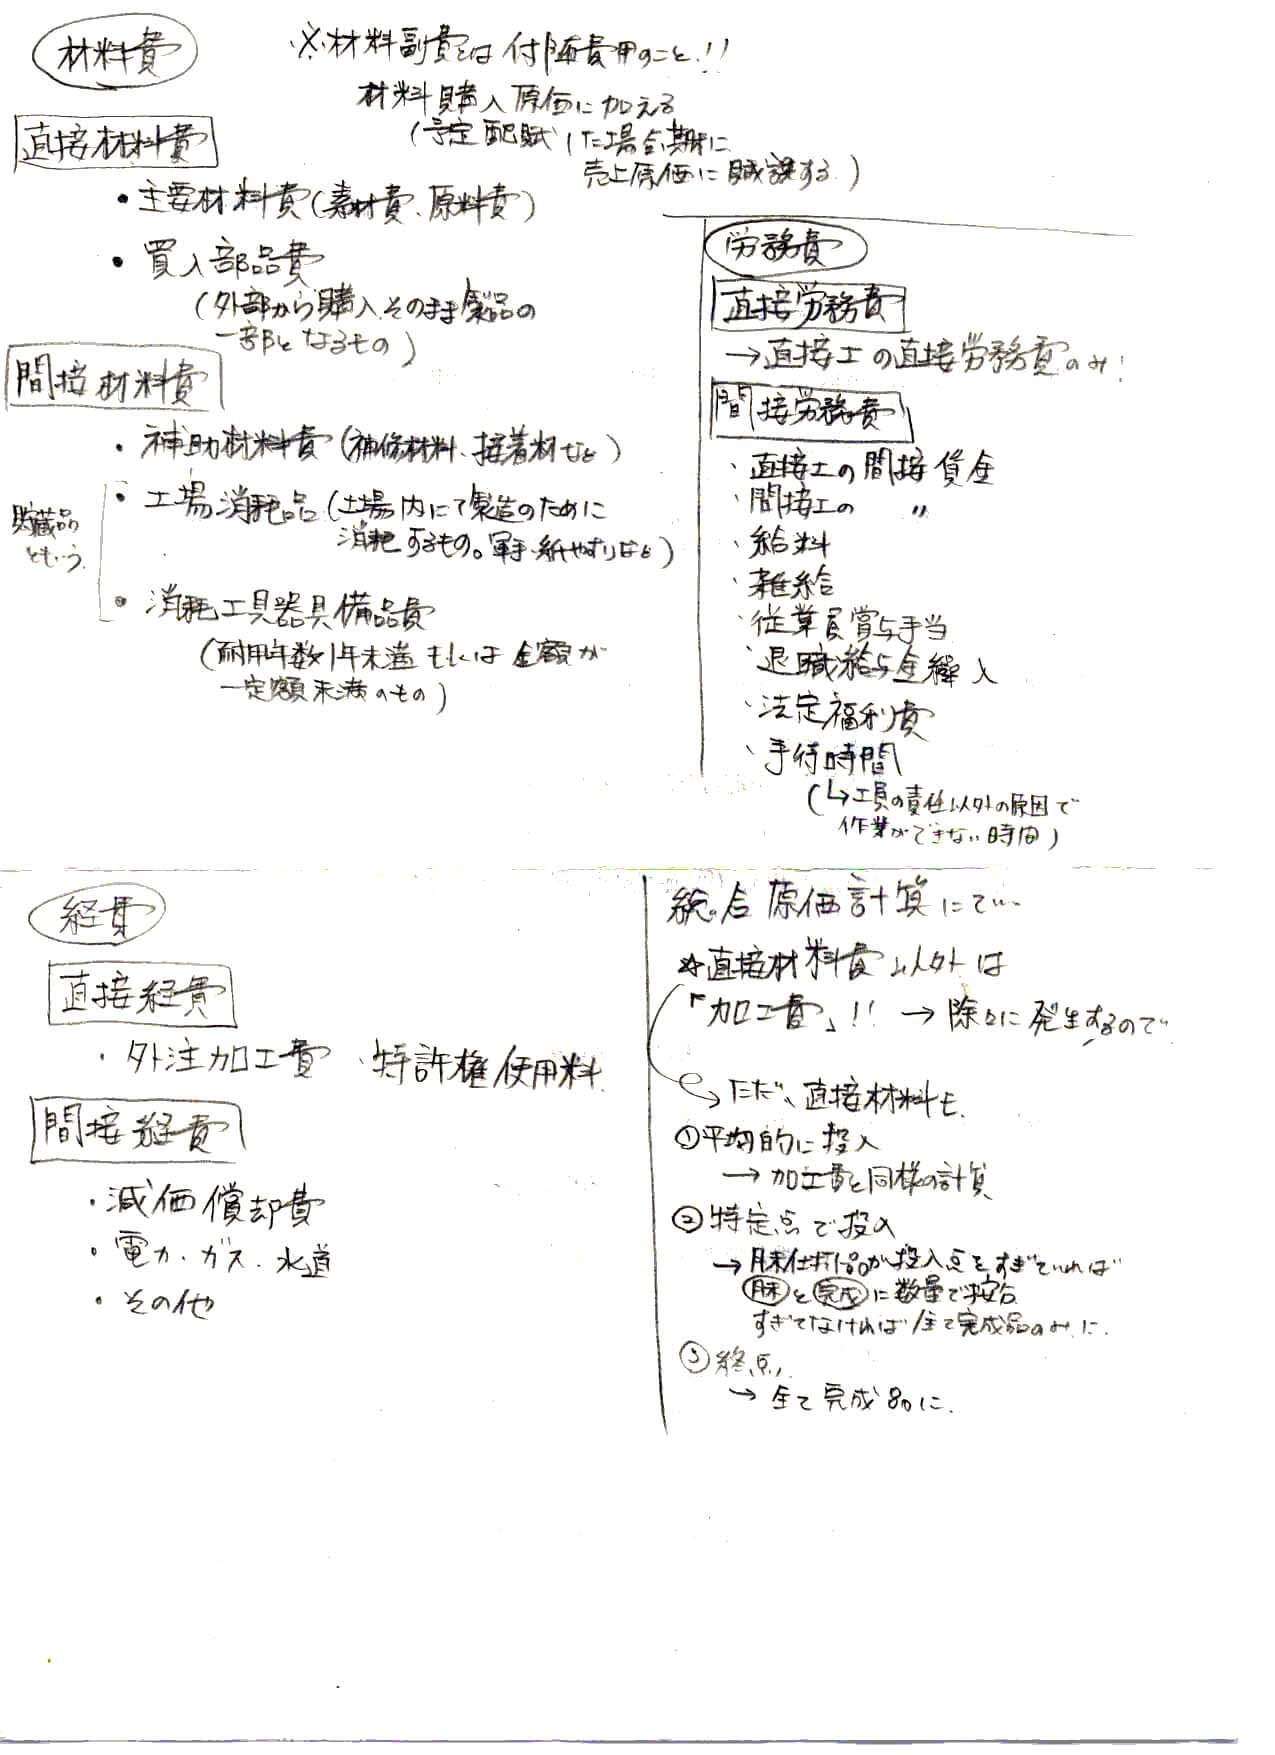 材料費
※材料副費とは付随費用のこと!!
材料購入原価に加える
(予定配賦した場合、期末に
売上原価に賦課する)
直接材料費
・主要材料費(素材費、原料費)
・買入部品費
(外部から購入、そのまま製品の
一部となるもの)
間接材料費
・補助材料費(補修材料、接着材など)
・工場消耗品(工場内にて製造のために
消耗するもの。軍手、紙やすりなど)
貯蔵品
ともいう
・消耗工具器具備品費
(耐用年数1年未満もしくは金額が
一定額未満のもの)
労務費
直接労務費
→直接工の直接労務費のみ!
間接労務費
・直接工の間接賃金
・間接工の 〃
・給料
・雑給
・従業員賞与手当
・退職給与金繰入
・法定福利費
・手待時間
(↳工員の責任以外の原因で
作業ができない時間)
経費
直接経費
・外注加工費 ・特許権使用料
間接経費
・減価償却費
・電力・ガス・水道
・その他
統合原価計算にて…
☆直接材料費以外は
「加工費」!! →除々に発生するので
↳ただ、直接材料も、
①平均的に投入
→加工費と同様の計算
②特定点で投入
→月末仕掛品が投入点をすぎていれば
月末と完成に数量で按分
すぎてなければ全て完成品のみに.
③終点
→全て完成品に.